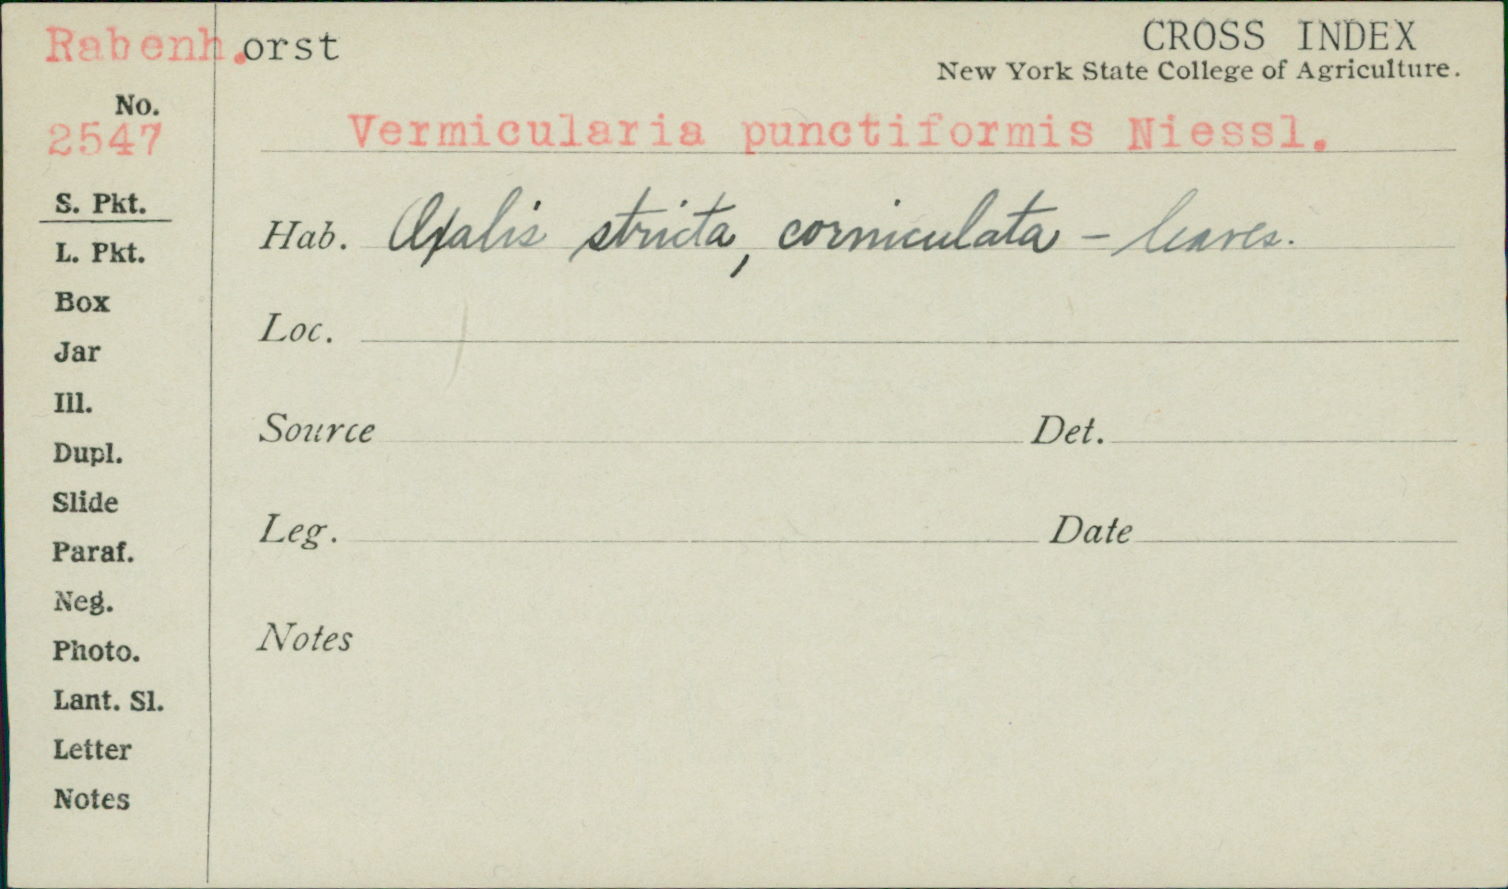 Rabenh.orst
CROSS INDEX
New York State College of Agriculture.
No.
2547
Vermicularia punctiformis Niessl.
S. Pkt.
Hab. Oxalis stricta, corniculata - leaves.
L. Pkt.
Box
Loc.
Jar
Ill.
Source Det.
Dupl.
Slide
Leg. Date
Paraf.
Neg.
Notes
Photo.
Lant. Sl.
Letter
Notes